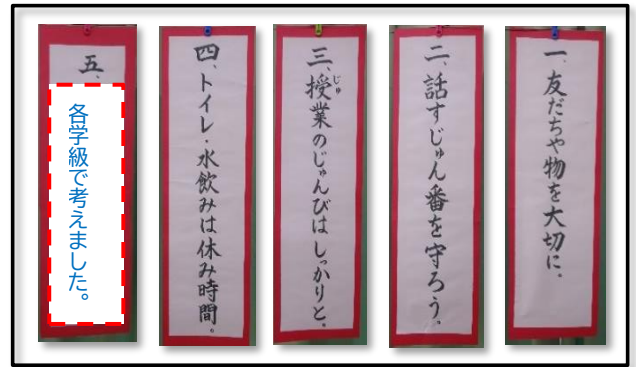 一、友だちや物を大切に。
二、話すじゅん番を守ろう。
三、授業のじゅんびはしっかりと。
じゅ
四、トイレ・水飲みは休み時間。
五、
各学級で考えました。